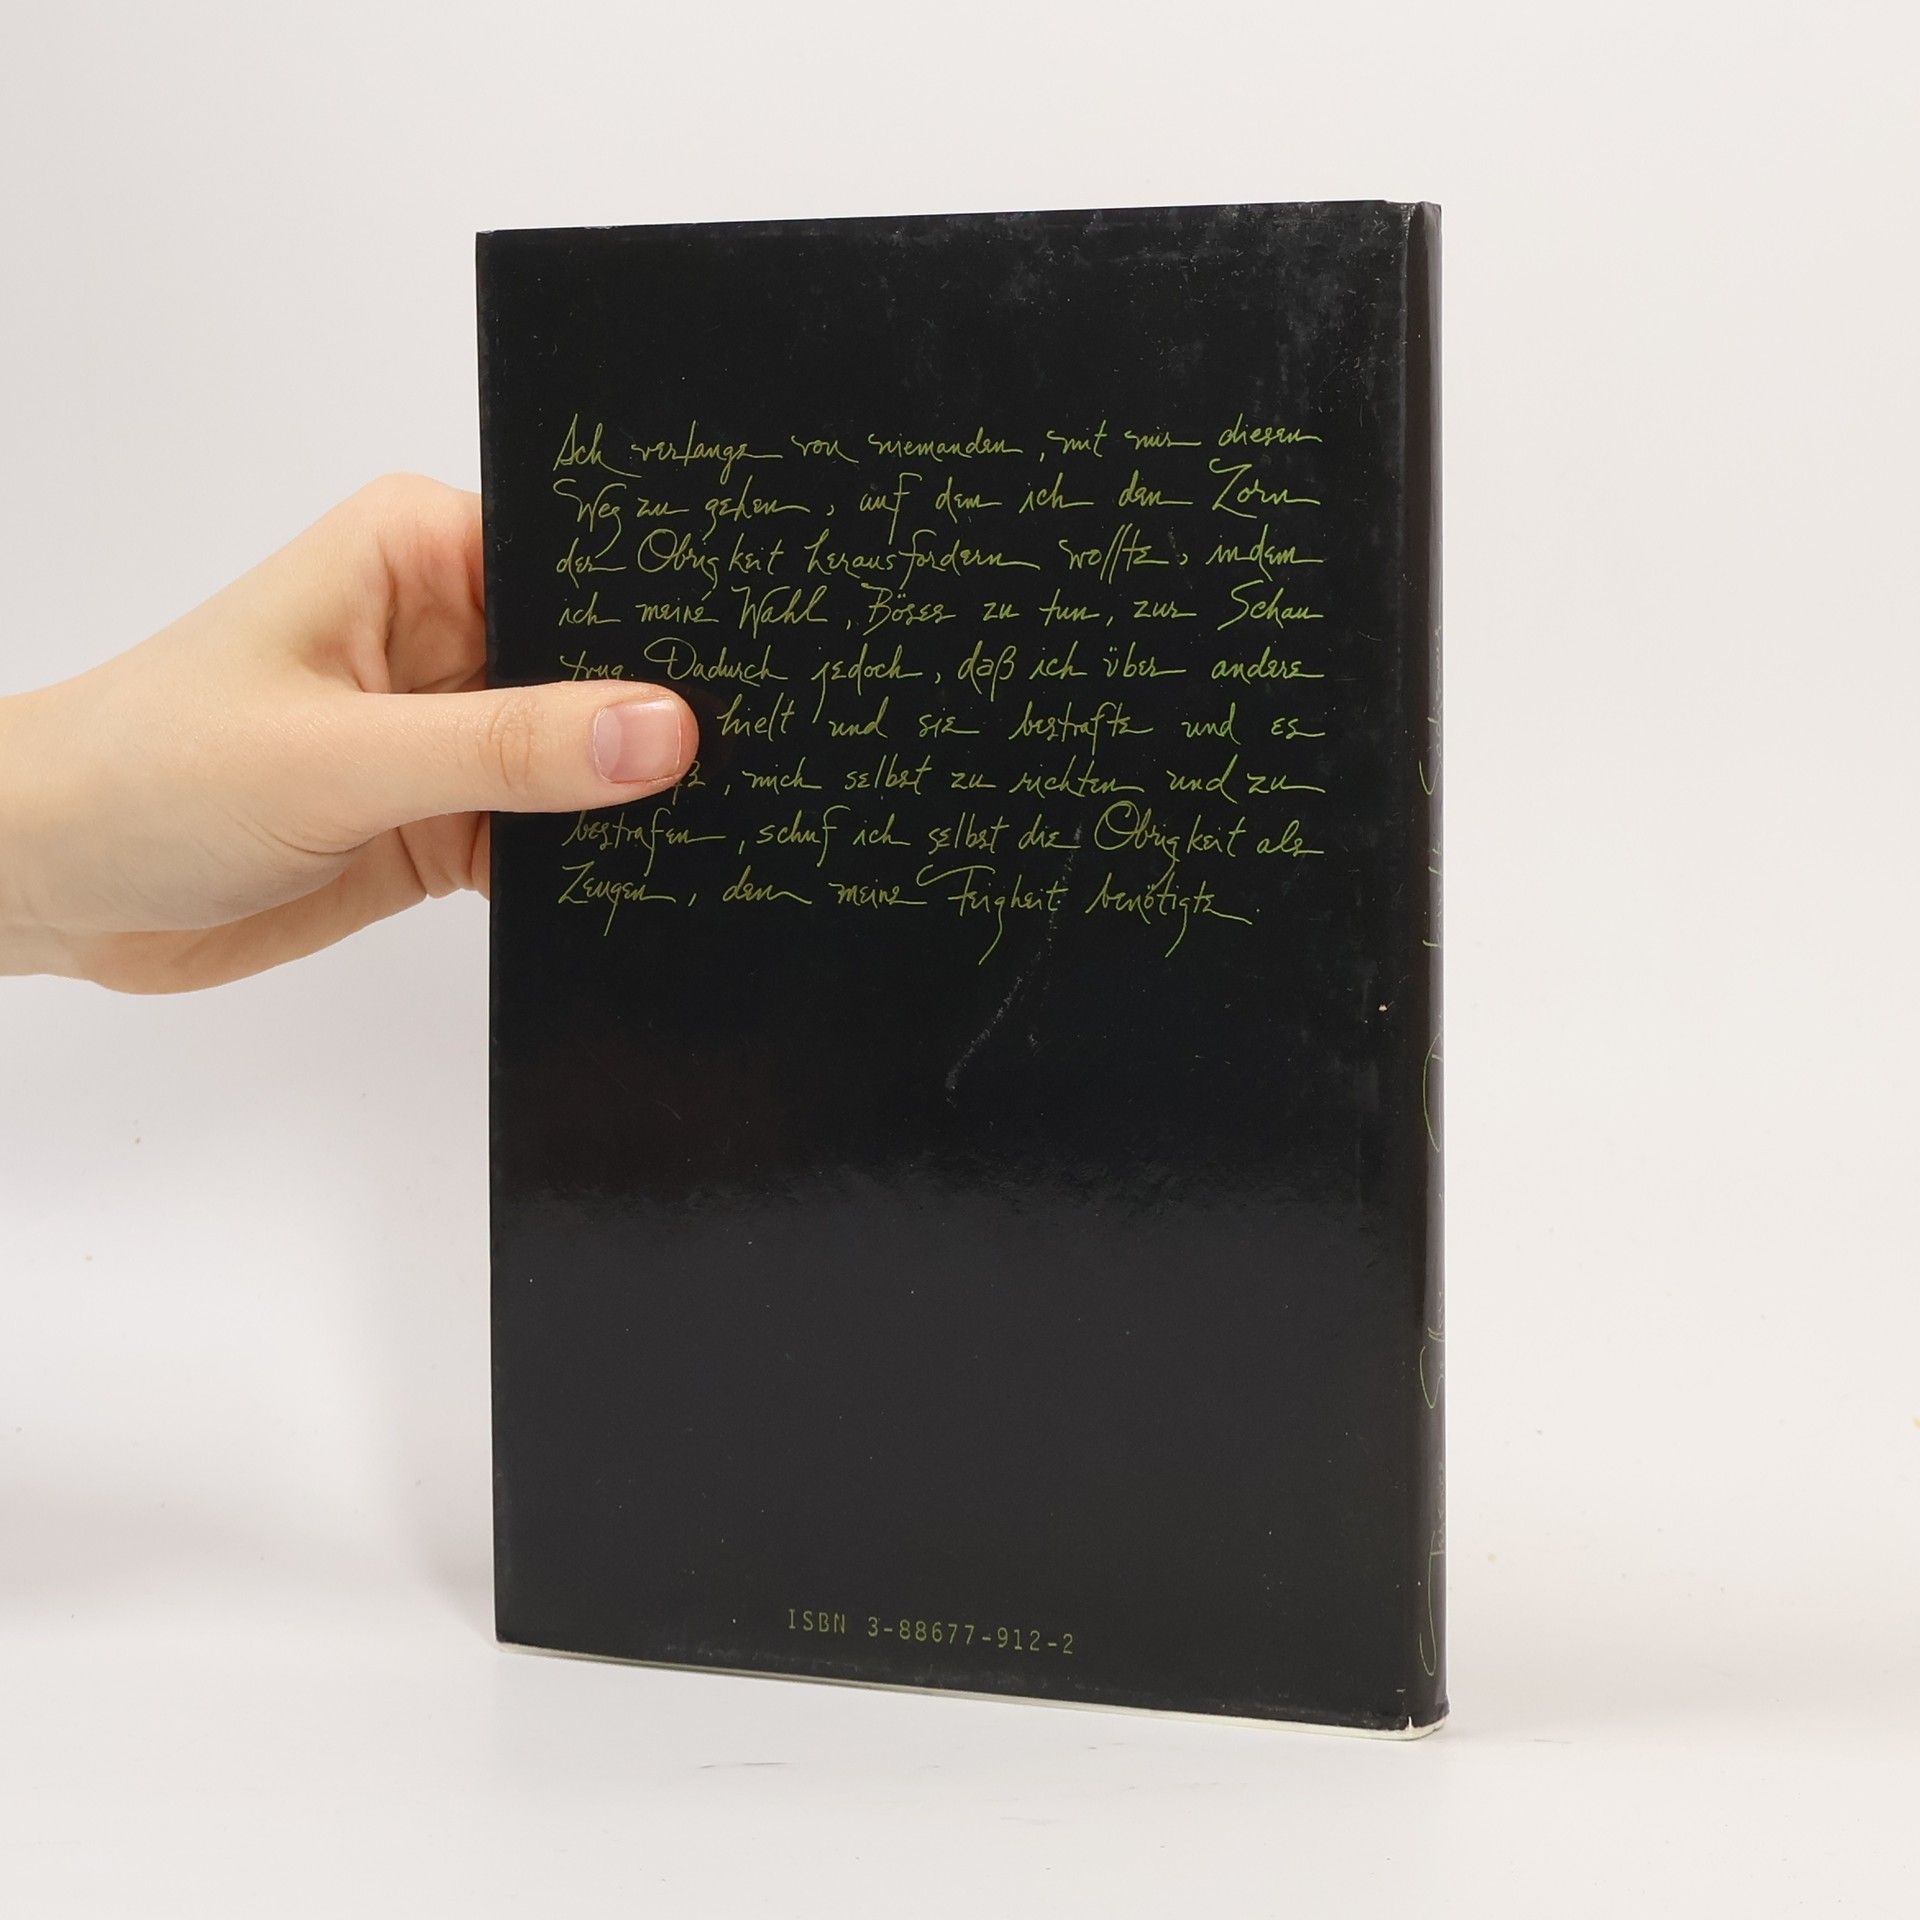 Ich verlange von niemanden, mit mir diesen
Weg zu gehen, auf dem ich den Zorn
der Obrigkeit herausfordern wollte, indem
ich meine Wahl, Böses zu tun, zur Schau
trug. Dadurch jedoch, daß ich über andere
hielt und sie bestrafte und es
, mich selbst zu richten und zu
bestrafen, schuf ich selbst die Obrigkeit als
Zeugen, den meine Feigheit benötigte.
ISBN 3-88677-912-2